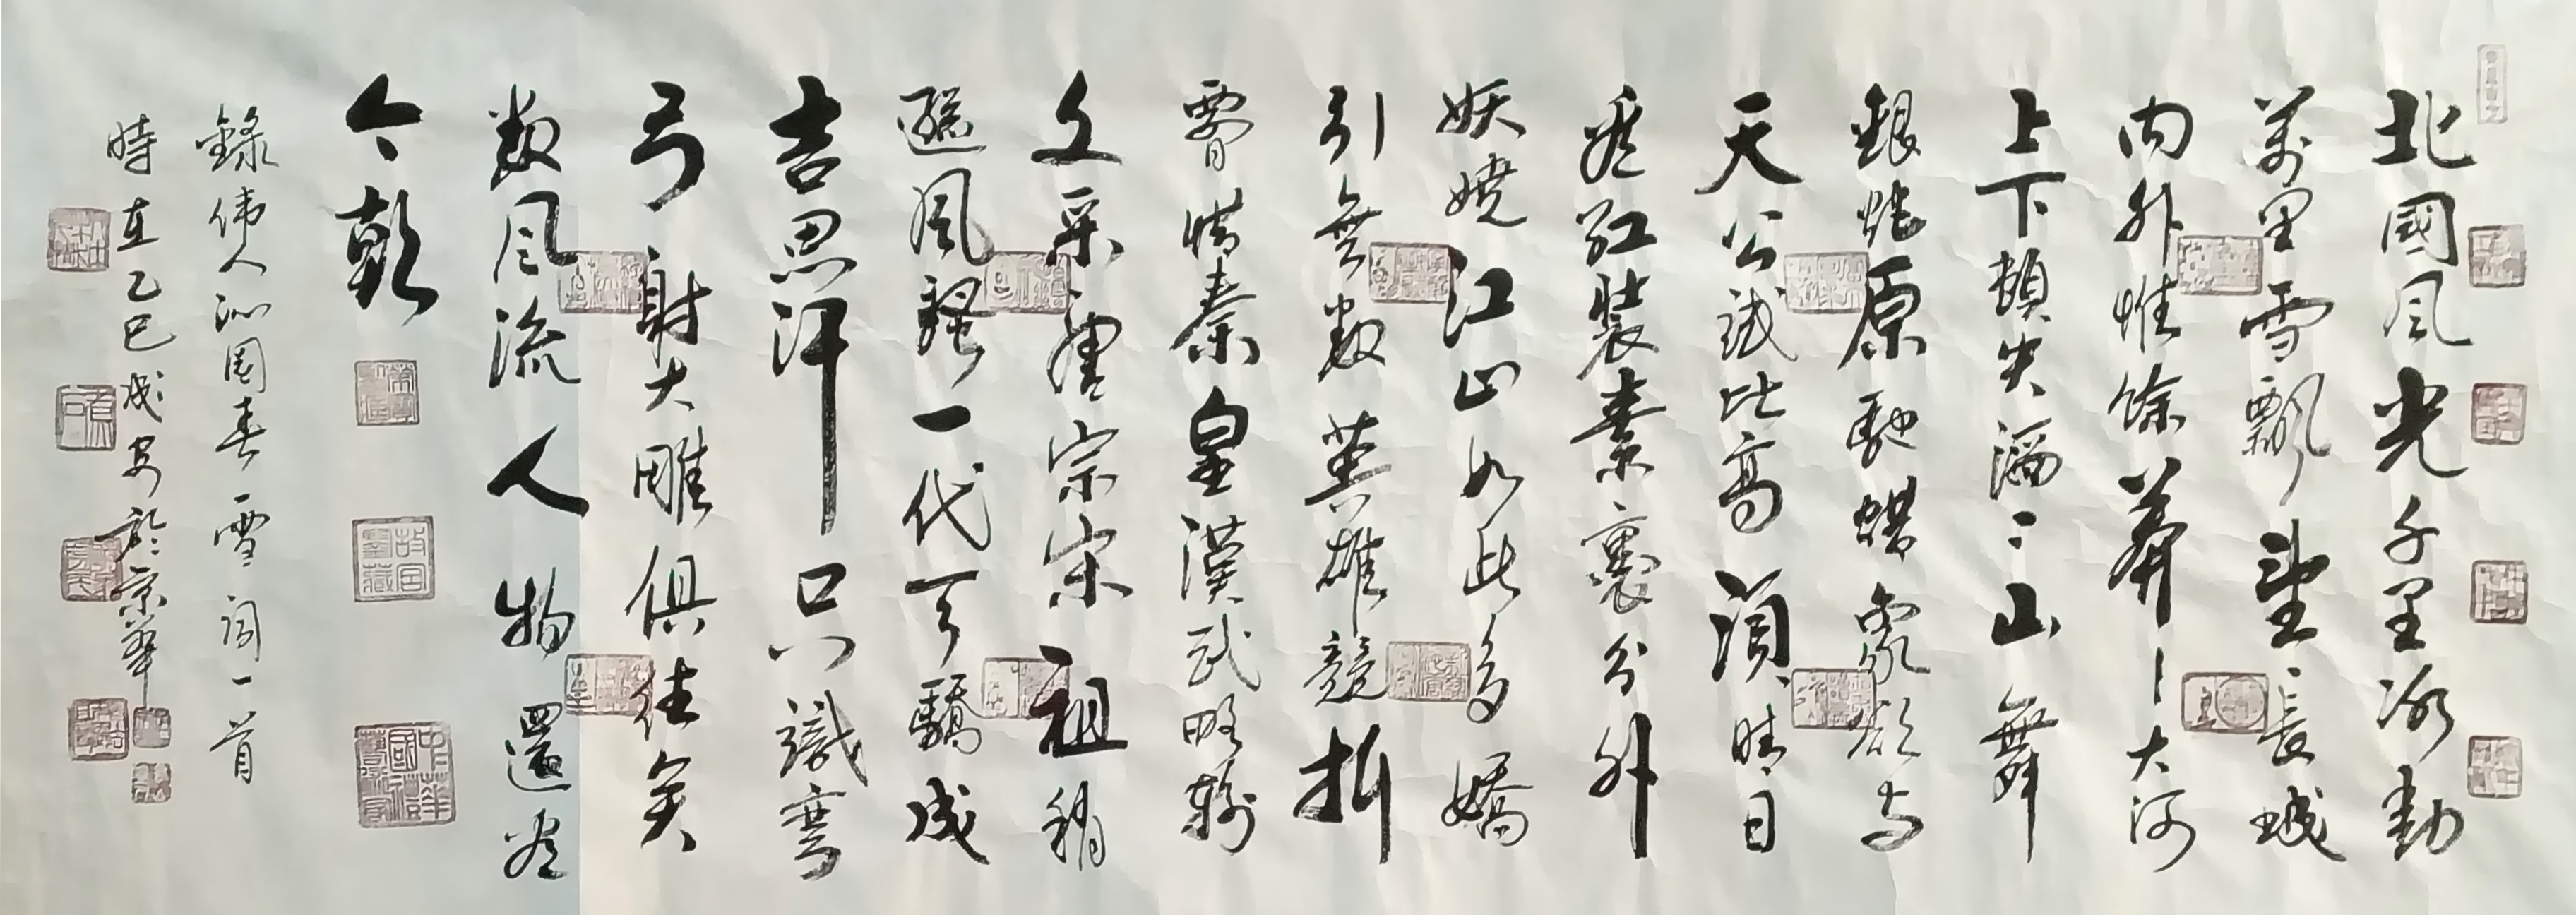 北國風光千里冰封
萬里雪飄望長城
內外惟餘莽莽大河
上下頓失滔滔山舞
銀蛇原馳蠟象欲與
天公試比高須晴日
看紅裝素裹分外
妖嬈江山如此多嬌
引無數英雄競折
腰惜秦皇漢武略輸
文采唐宗宋祖稍
遜風騷一代天驕成
吉思汗只識彎
弓射大雕俱往矣
數風流人物還看
今朝
錄伟人沁園春雪詞一首
時在乙巳成安於京華